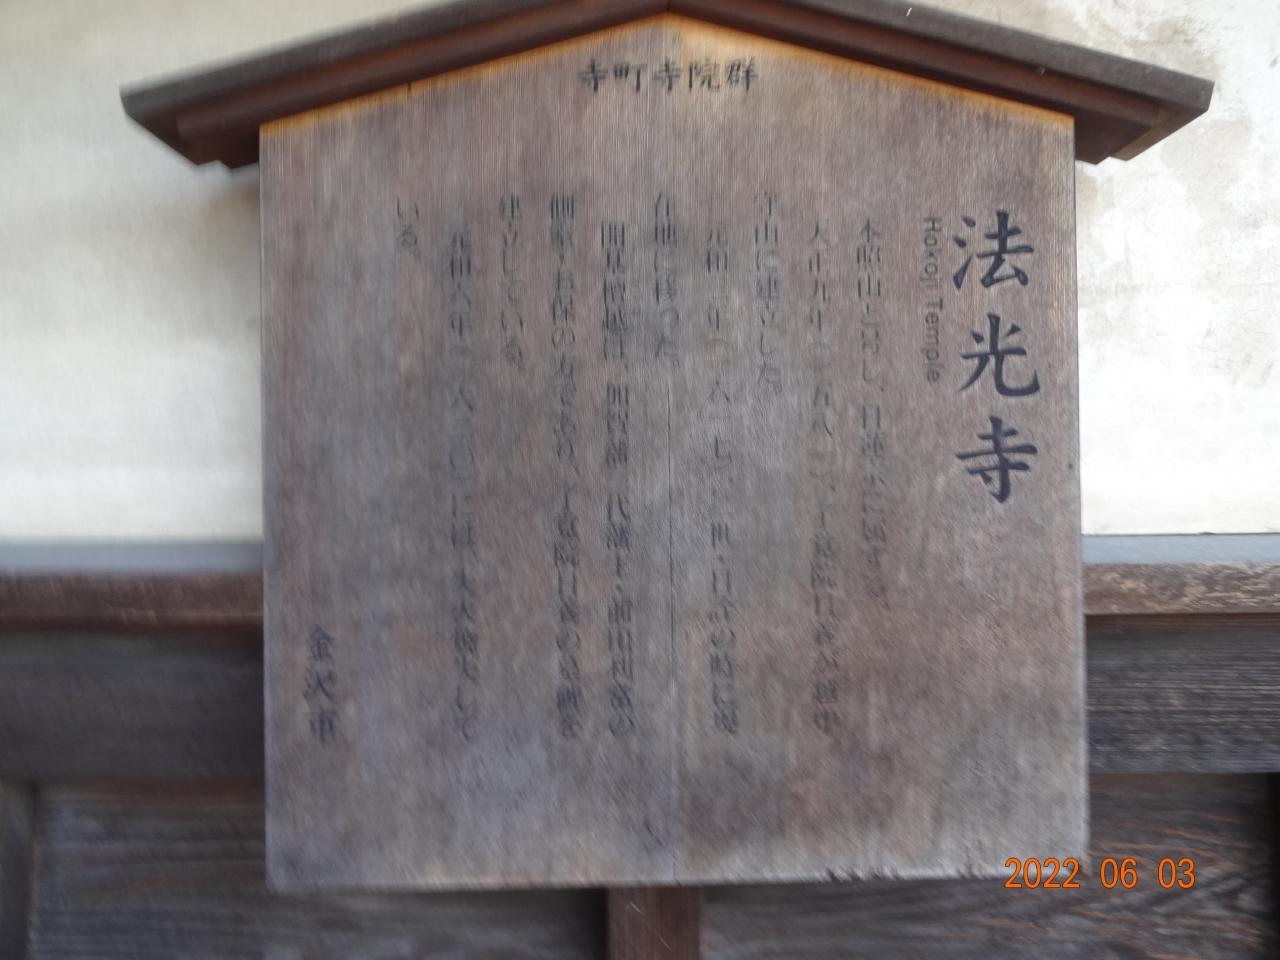 寺町寺院群
法光寺
Hokoji Temple
本照山と号し、日蓮宗に属する。
天正九年（一五八一）、了覚院日養が越中
守山に建立した。
元和三年（一六一七）、二世・日詮の時に現
在地に移った。
開基檀越は、加賀藩二代藩主・前田利常の
側室・お保の方であり、了覚院日養の墓碑を
建立している。
元和六年（一六二〇）には、大火焼失して
いる。
金沢市
2022 06 03